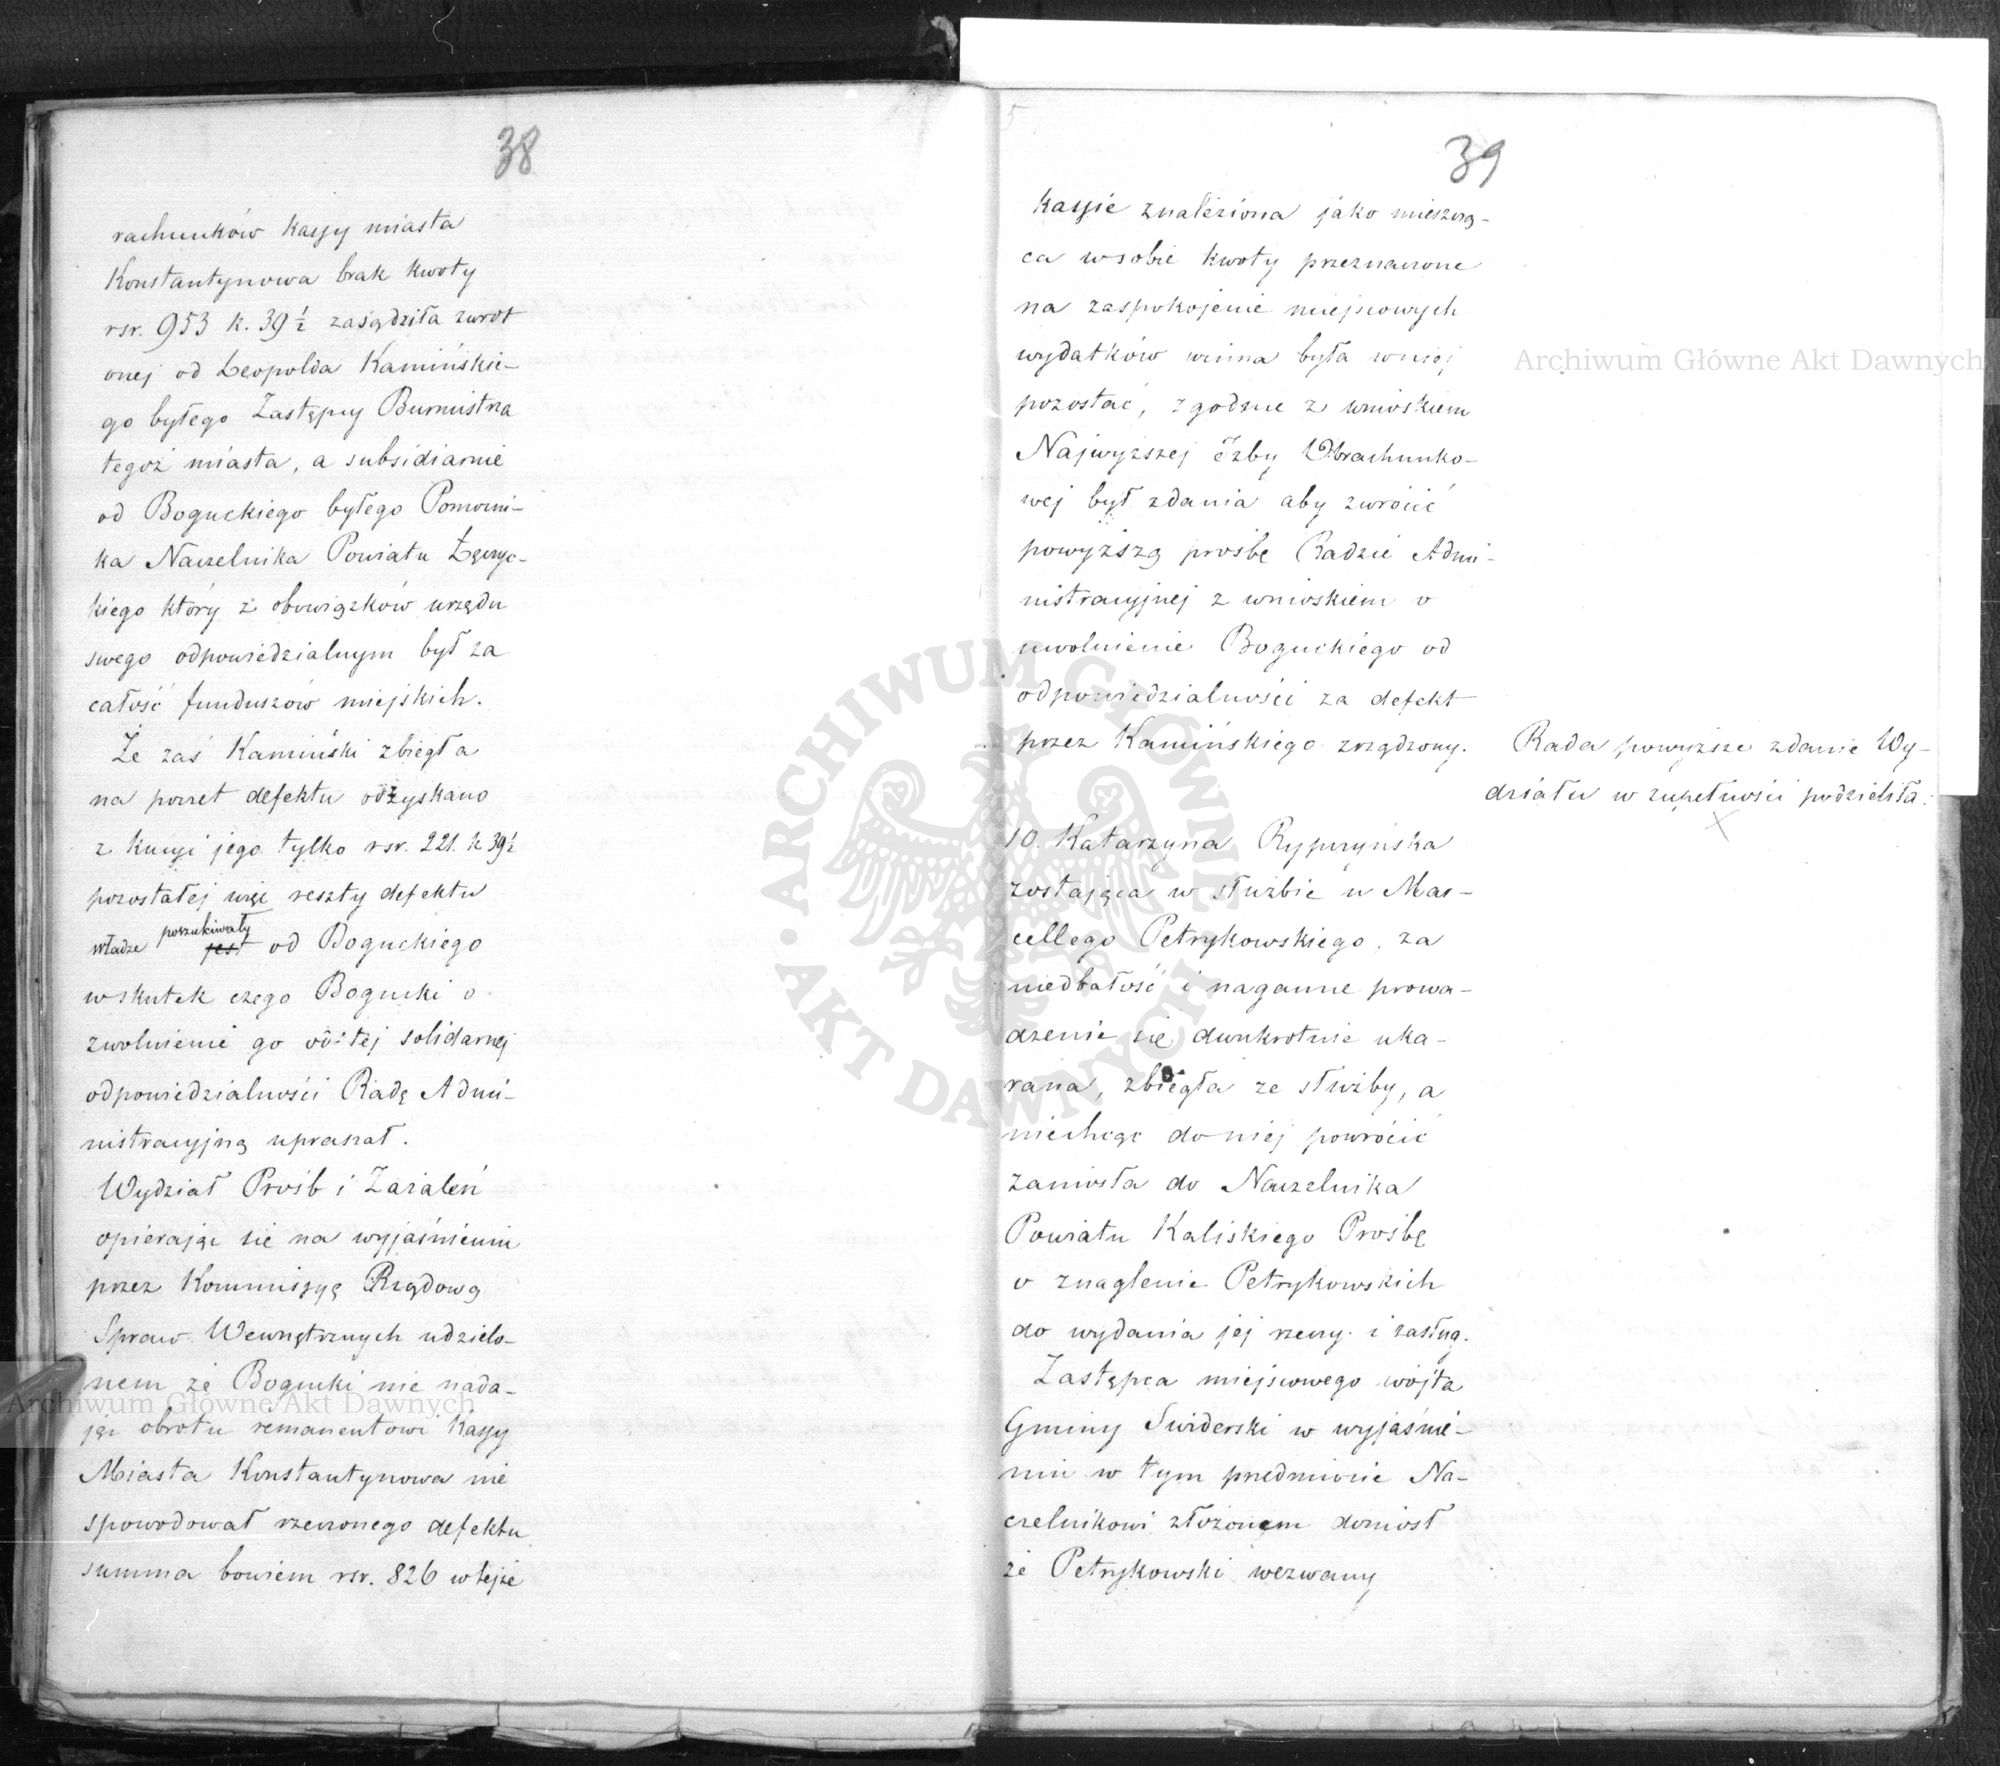 38
rachunków kassy miasta
Konstantynowa brak kwoty
rsr. 953 k. 39 ½ zasądziła zwrot
onej od Leopolda Kamińskie-
go byłego Zastępcy Burmistrza
tegoż miasta, a subsidiarnie
od Boguckiego byłego Pomocni-
ka Naczelnika Powiatu Łęczyc-
kiego który z obowiązków urzędu
swego odpowiedzialnym był za
całość funduszów miejskich.
Że zaś Kamiński zbiegł a
na poczet defektu odzyskano
z kaucyi jego tylko rsr. 221. k 39½
pozostałej więc reszty defektu
władze poszukiwały jest od Boguckiego
wskutek czego Bogucki o
zwolnienie go od tej solidarnej
odpowiedzialności Radę Admi-
nistracyjną upraszał.
Wydział Próśb i Zażaleń
opierając się na wyjaśnieniu
przez Kommissyę Rządową
Spraw Wewnętrznych udzielo-
nem że Bogucki nie nada-
jąc obrotu remanentowi Kassy
Miasta Konstantynowa nie
spowodował rzeczonego defektu
summa bowiem rsr. 826 wtejże
39
kassie znaleziona jako mieszczą-
ca wsobie kwoty przeznaczone
na zaspokojenie miejscowych
wydatków winna była wniej
pozostać, zgodnie z wnioskiem
Najwyższej Izby Obrachunko-
wej był zdania aby zwrócić
powyższą prośbę Radzie Admi-
nistracyjnej z wnioskiem o
uwolnienie Boguckiego od
odpowiedzialności za defekt
przez Kamińskiego zrządzony.
Rada powyższe zdanie Wy-
działu w zupełności podzieliła.
10. Katarzyna Rypczyńska
zostająca w służbie u Mar-
cellego Petrykowskiego, za
niedbałość i naganne prowa-
dzenie się dwukrotnie uka-
rana, zbiegła ze służby, a
niechcąc do niej powrócić
zaniosła do Naczelnika
Powiatu Kaliskiego Prośbę
o znaglenie Petrykowskich
do wydania jej rzeczy i zasług.
Zastępca miejscowego wójta
Gminy Swiderski w wyjaśnie-
niu w tym przedmiocie Na-
czelnikowi złożonem doniosł
że Petrykowski wezwany
Archiwum Główne Akt Dawnych
Archiwum Główne Akt Dawnych
ARCHIWUM GŁÓWNE · AKT DAWNYCH ·